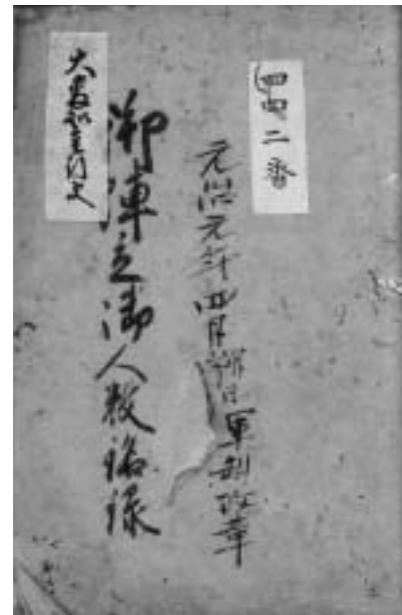 四四二番
元治元年四月朔日軍制改革
御陣立御人数録
大